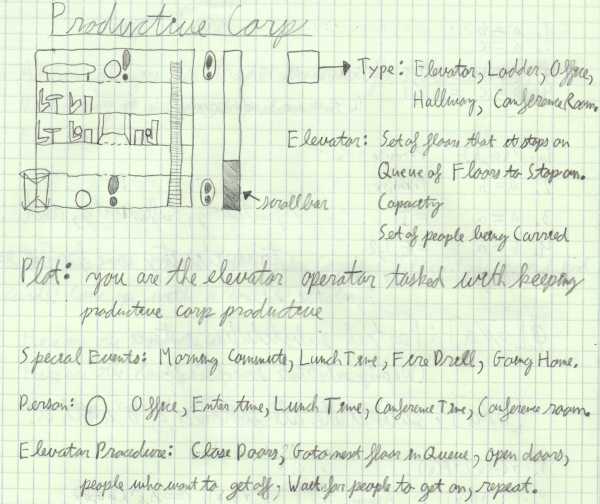 Productive Corp
Type: Elevator, Ladder, Office,
Hallway, Conference Room.
Elevator: Set of floors that it stops on
Queue of Floors to Stop on.
Capacity
Set of people being Carried
scroll bar
Plot: you are the elevator operator tasked with keeping
productive corp productive
Special Events: Morning Commute, Lunch Time, Fire Drill, Going Home.
Person: Office, Enter time, Lunch Time, Conference Time, Conference room.
Elevator Procedure: Close Doors, Goto next floor in Queue, open doors,
people who want to get off, Wait for people to get on, repeat.